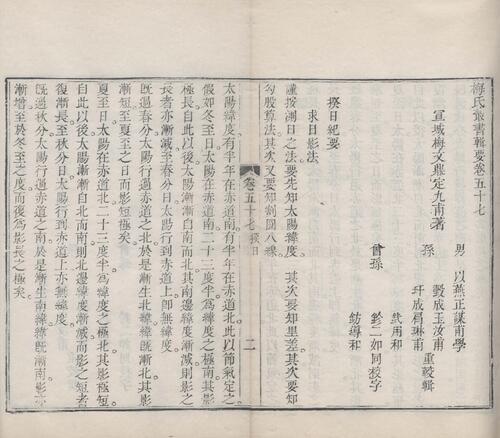 梅氏叢書輯要卷五十七
宣城梅文鼎定九甫著
男 以燕正謀甫學
孫 瑴成玉汝甫 重較輯
玕成肩琳甫
曾孫 鈖二如同校字
鈁導和
揆日紀要
求日影法
謹按測日之法要先知太陽緯度其次要知里差其次要知
勾股算法其次又要知割圓八線
卷五十七 揆日
太陽緯度有半年在赤道南有半年在赤道北此以節氣定之
假如冬至日太陽在赤道南二十三度半為緯度之極南其影
極長自此以後太陽漸漸自南而北其南邊緯度漸減則影之
長者亦漸減至春分太陽行到赤道上卽無緯度
旣過春分太陽行過赤道之北於是漸生北緯緯旣漸北其影
漸短至夏至之日而影短極矣
夏至日太陽在赤道北二十三度半為緯度之極北其影極短
自此以後太陽漸漸自北而南則北邊緯度漸減而影之短者
復漸長至秋分太陽行到赤道上亦無緯度
旣過秋分太陽行過赤道之南於是漸生南緯緯旣漸南影亦
漸增至於冬至之度而復為影長之極矣